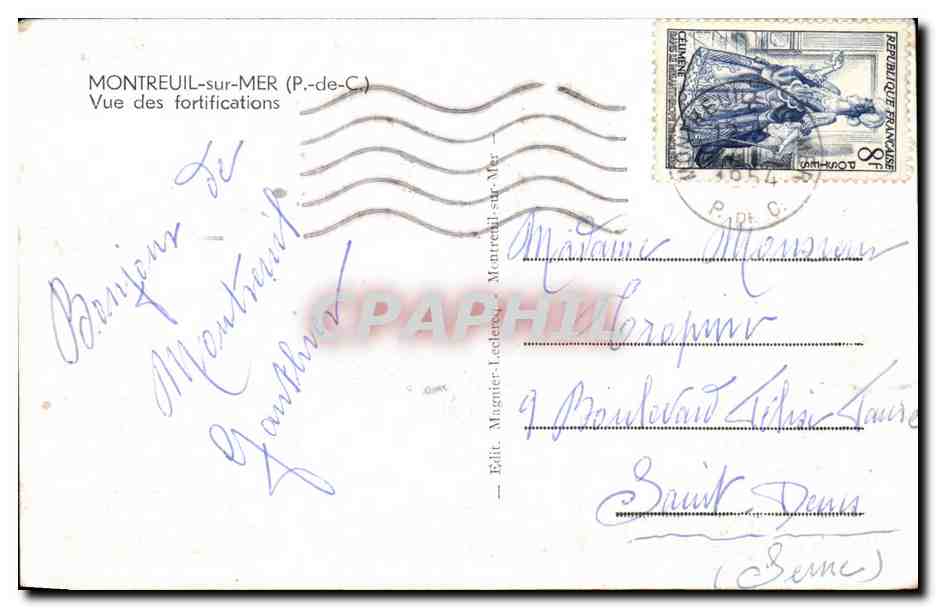 MONTREUIL-sur-MER (P.-de-C.)
Vue des fortifications
Bonjour de
Montreuil
Gauthier
— Edit. Magnier-Leclercq - Montreuil-sur-Mer —
REPUBLIQUE FRANÇAISE
8F
POSTES
CÉLIMÈNE
1954
P. DE C.
CPARAPHIL
Madame Monsieur
9 Boulevard Félix Faure
Saint-Denis
(Seine)